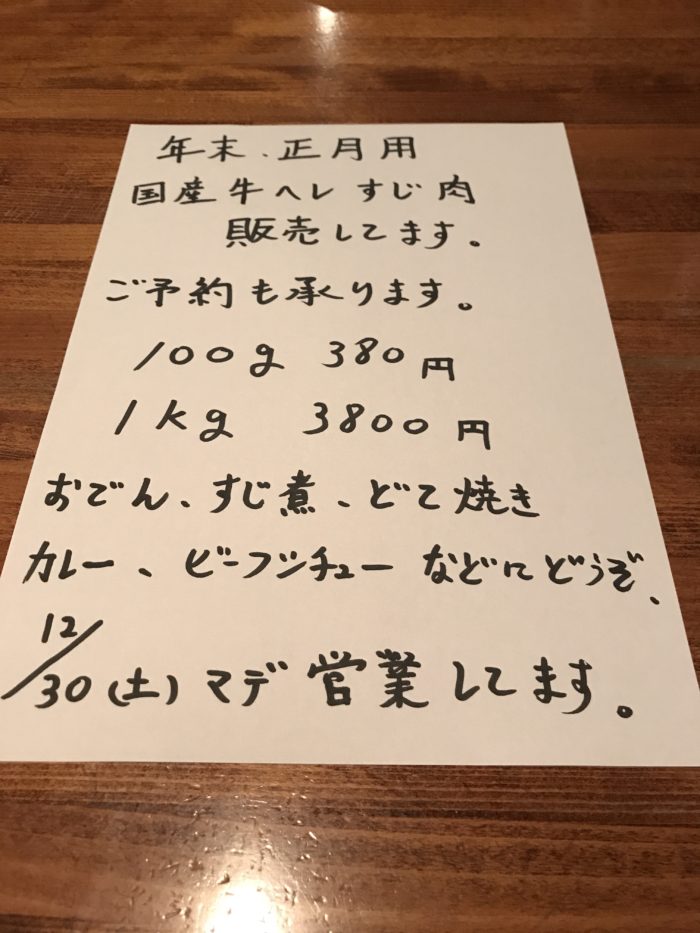 年末、正月用
国産牛ヘレ すじ肉
販売してます。
ご予約も承ります。
100g 380円
1kg 3800円
おでん、すじ煮、どて焼き
カレー、ビーフシチューなどにどうぞ、
12/30(土)マデ営業してます。